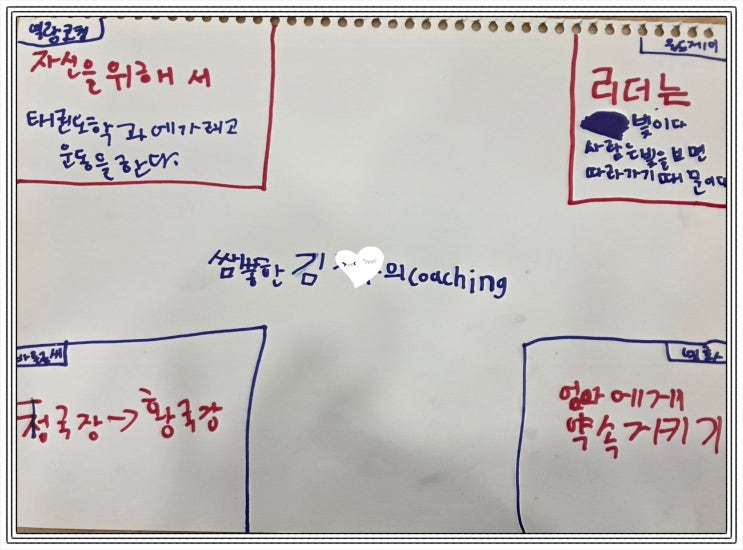 역량코칭
자신을 위해서
태권도학과에 가려고
운동을 한다.
리더는
빛이다
사람은 빛을 보면
따라가기 때문이다
쌈뽕한 김
의 coaching
청국장→황국장
엄마에게
약속 지키기